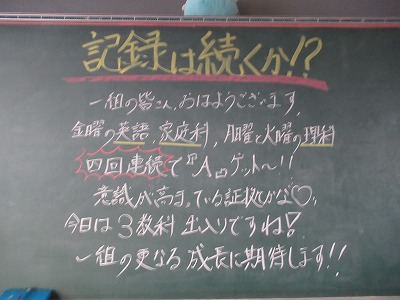 記録は続くか!?
一組の皆さん、おはようございます。
金曜の英語、家庭科、月曜と火曜の理科
四回連続で『A』ゲット〜!!
意識が高まっている証拠かな♡
今日は3教科出入りですね!
一組の更なる成長に期待します!!